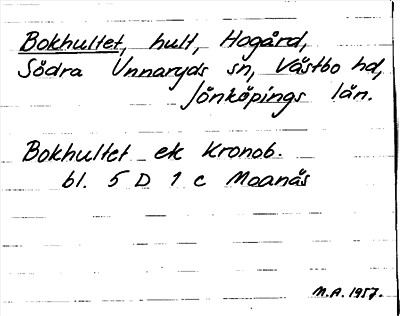 Bokhultet, hult, Hogård,
Södra Unnaryds sn, Västbo hd,
Jönköpings län.
Bokhultet ek Kronob.
bl. 5 D 1 c Moanäs
M.A. 1957.